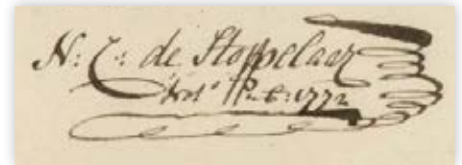 N: C: de Stoppelaar
1772